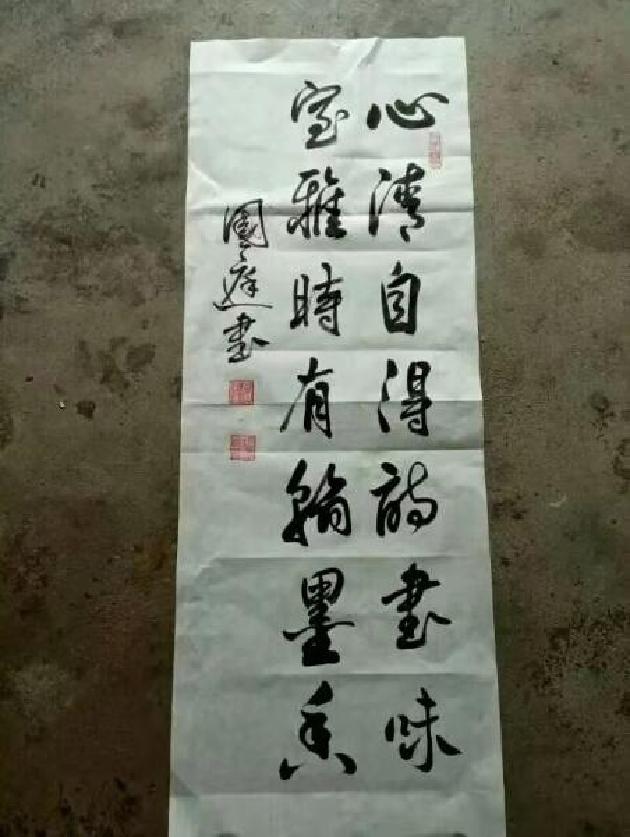 心清自得詩書味
室雅時有翰墨香
國庭書